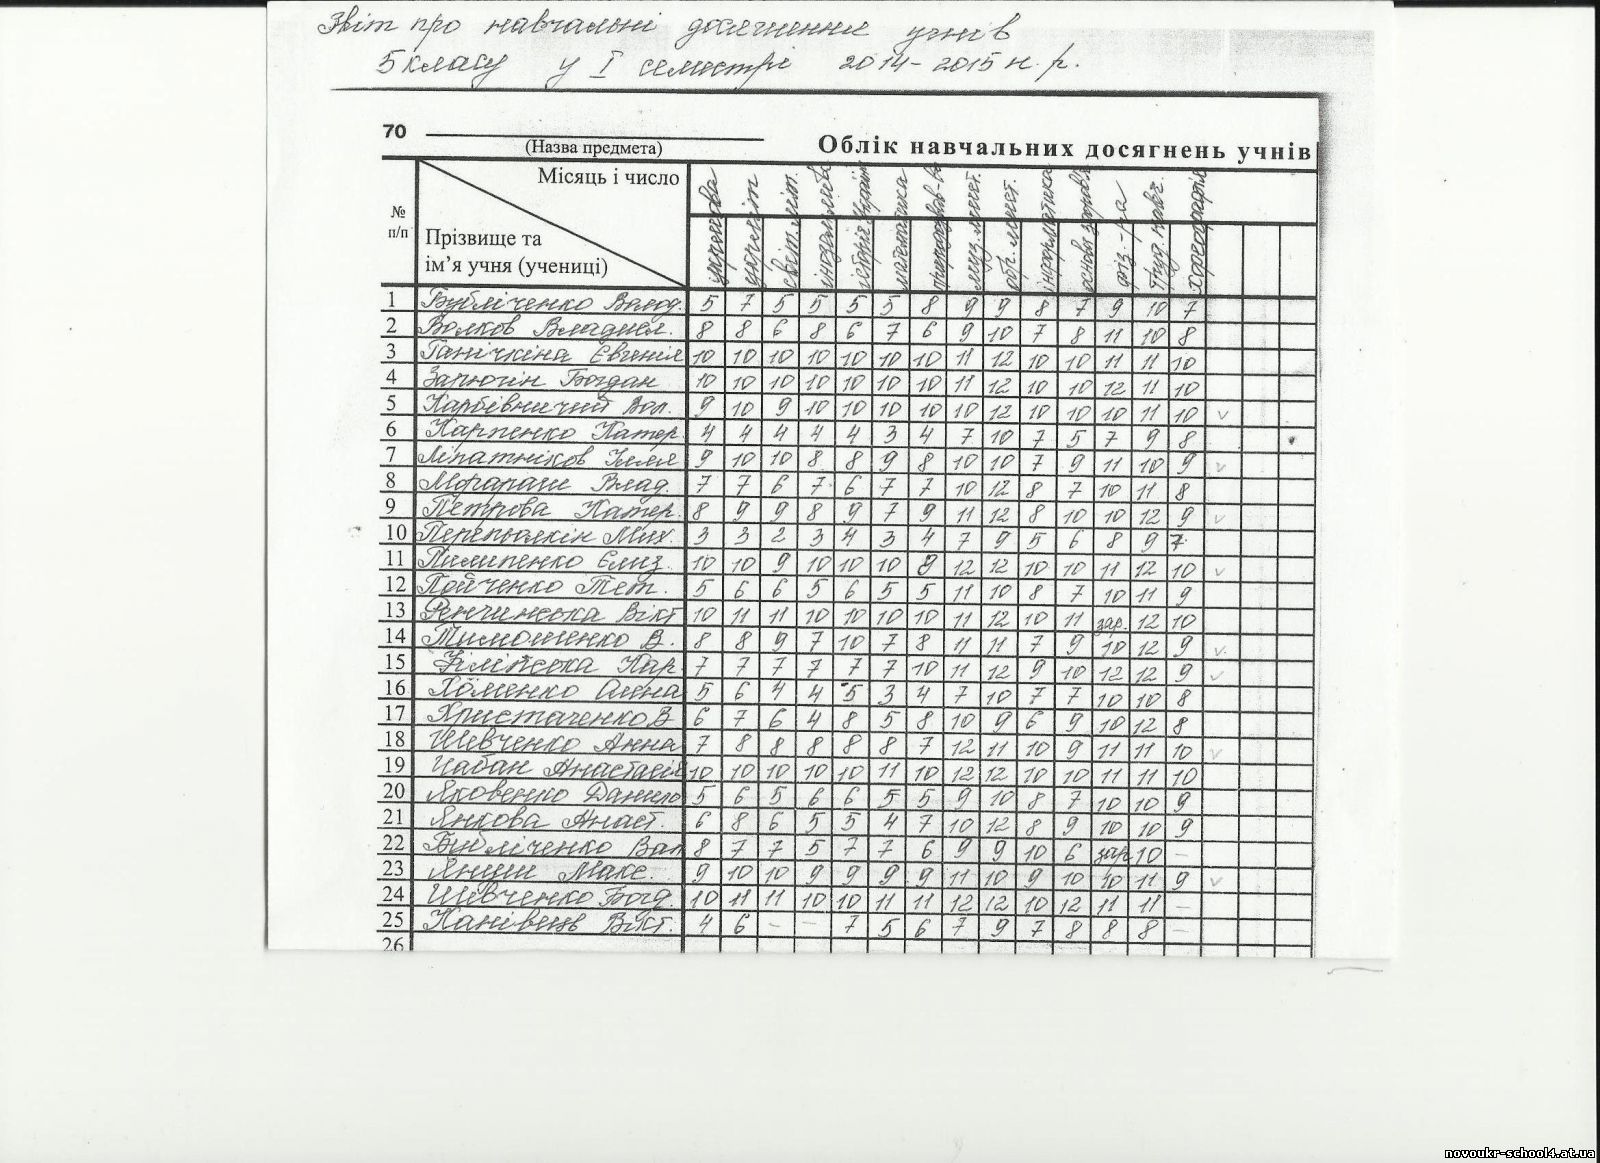 Звіт про навчальні досягнення учнів
5 класу у I семестрі 2014-2015 н. р.
70
(Назва предмета)
Облік навчальних досягнень учнів
Місяць і число
№ п/п
Прізвище та ім’я учня (учениці)
укр.мова укр.літ світ.літ. іноз.мова історія України математика природозн-во муз.мист. обр. мист. інформатика основи здоров'я фіз-ра труд. навч. хореографія
1 Бубліченко Волод. 5 7 5 5 5 5 8 9 9 8 7 9 10 7
2 Волков Владисл. 8 8 6 8 6 7 6 9 10 7 8 11 10 8
3 Ганічкіна Євгенія 10 10 10 10 10 10 10 11 12 10 10 11 11 10
4 Зарюгін Богдан 10 10 10 10 10 10 10 11 12 10 10 12 11 10
5 Карбівничий Вол. 9 10 9 10 10 10 10 10 12 10 10 10 11 10 v
6 Карпенко Катер. 4 4 4 4 4 3 4 7 10 7 5 7 9 8
7 Ліпатніков Ілля 9 10 10 8 8 9 8 10 10 7 9 11 10 9 v
8 Влад. 7 7 6 7 6 7 7 10 12 8 7 10 11 8
9 Петрова Катер. 8 9 9 8 9 7 9 11 12 8 10 10 12 9 v
10 Перепьолкін Мих. 3 3 2 3 4 3 4 7 9 5 6 8 9 7
11 Пилипенко Єлиз. 10 10 9 10 10 10 9 12 12 10 10 11 12 10 v
12 Пойченко Тет. 5 6 6 5 6 5 5 11 10 8 7 10 11 9
13 Ренчинська Вікт 10 11 11 10 10 10 10 11 12 10 11 зар. 12 10
14 Тимошенко В. 8 8 9 7 10 7 8 11 11 7 9 10 12 9 v
15 Кар 7 7 7 7 7 7 10 11 12 9 10 12 12 9 v
16 Хоменко Алена 5 6 4 4 5 3 4 7 10 7 7 10 10 8
17 Христаченко В 6 7 6 4 8 5 8 10 9 6 9 10 12 8
18 Шевченко Анна 7 8 8 8 8 8 7 12 11 10 9 11 11 10 v
19 Чабан Анастасія 10 10 10 10 10 11 10 12 12 10 10 11 11 10
20 Яковенко Данило 5 6 5 6 6 5 5 9 10 8 7 10 10 9
21 Янкова Анаст. 6 8 6 5 5 4 7 10 12 8 9 10 10 9
22 Бубліченко Вал 8 7 7 5 7 7 6 9 9 10 6 зар 10 -
23 Янчин Макс. 9 10 10 9 9 9 9 11 10 9 10 10 11 9 v
24 Шевченко Богд. 10 11 11 10 10 11 11 12 12 10 12 11 11 -
25 Канівець Вікт. 4 6 - - 7 5 6 7 9 7 8 8 8 -
26
novoukr-school4.at.ua